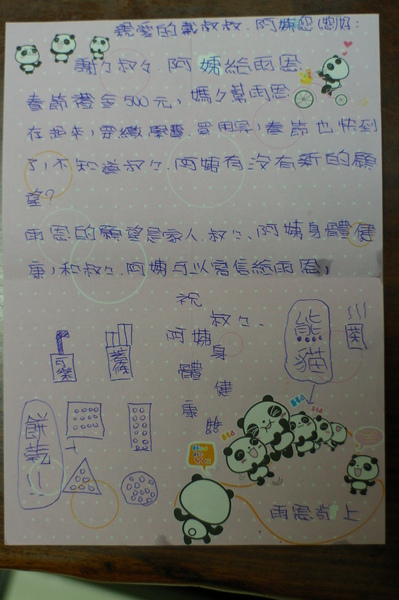 親愛的戴叔叔.阿姨您(您)好:
謝々叔々.阿姨給雨恩
春節禮金500元,媽々幫雨恩
在起來,要繳學費.買用具,春節也快到
了,不知道叔々.阿姨有沒有新的願
望?
雨恩的願望是家人.叔々、阿姨身體健
康,和叔々.阿姨可以寫信給雨恩,
祝
叔々、
阿姨身
體健
康
熊貓
菊
可樂
薯條
餅乾
雨恩 上